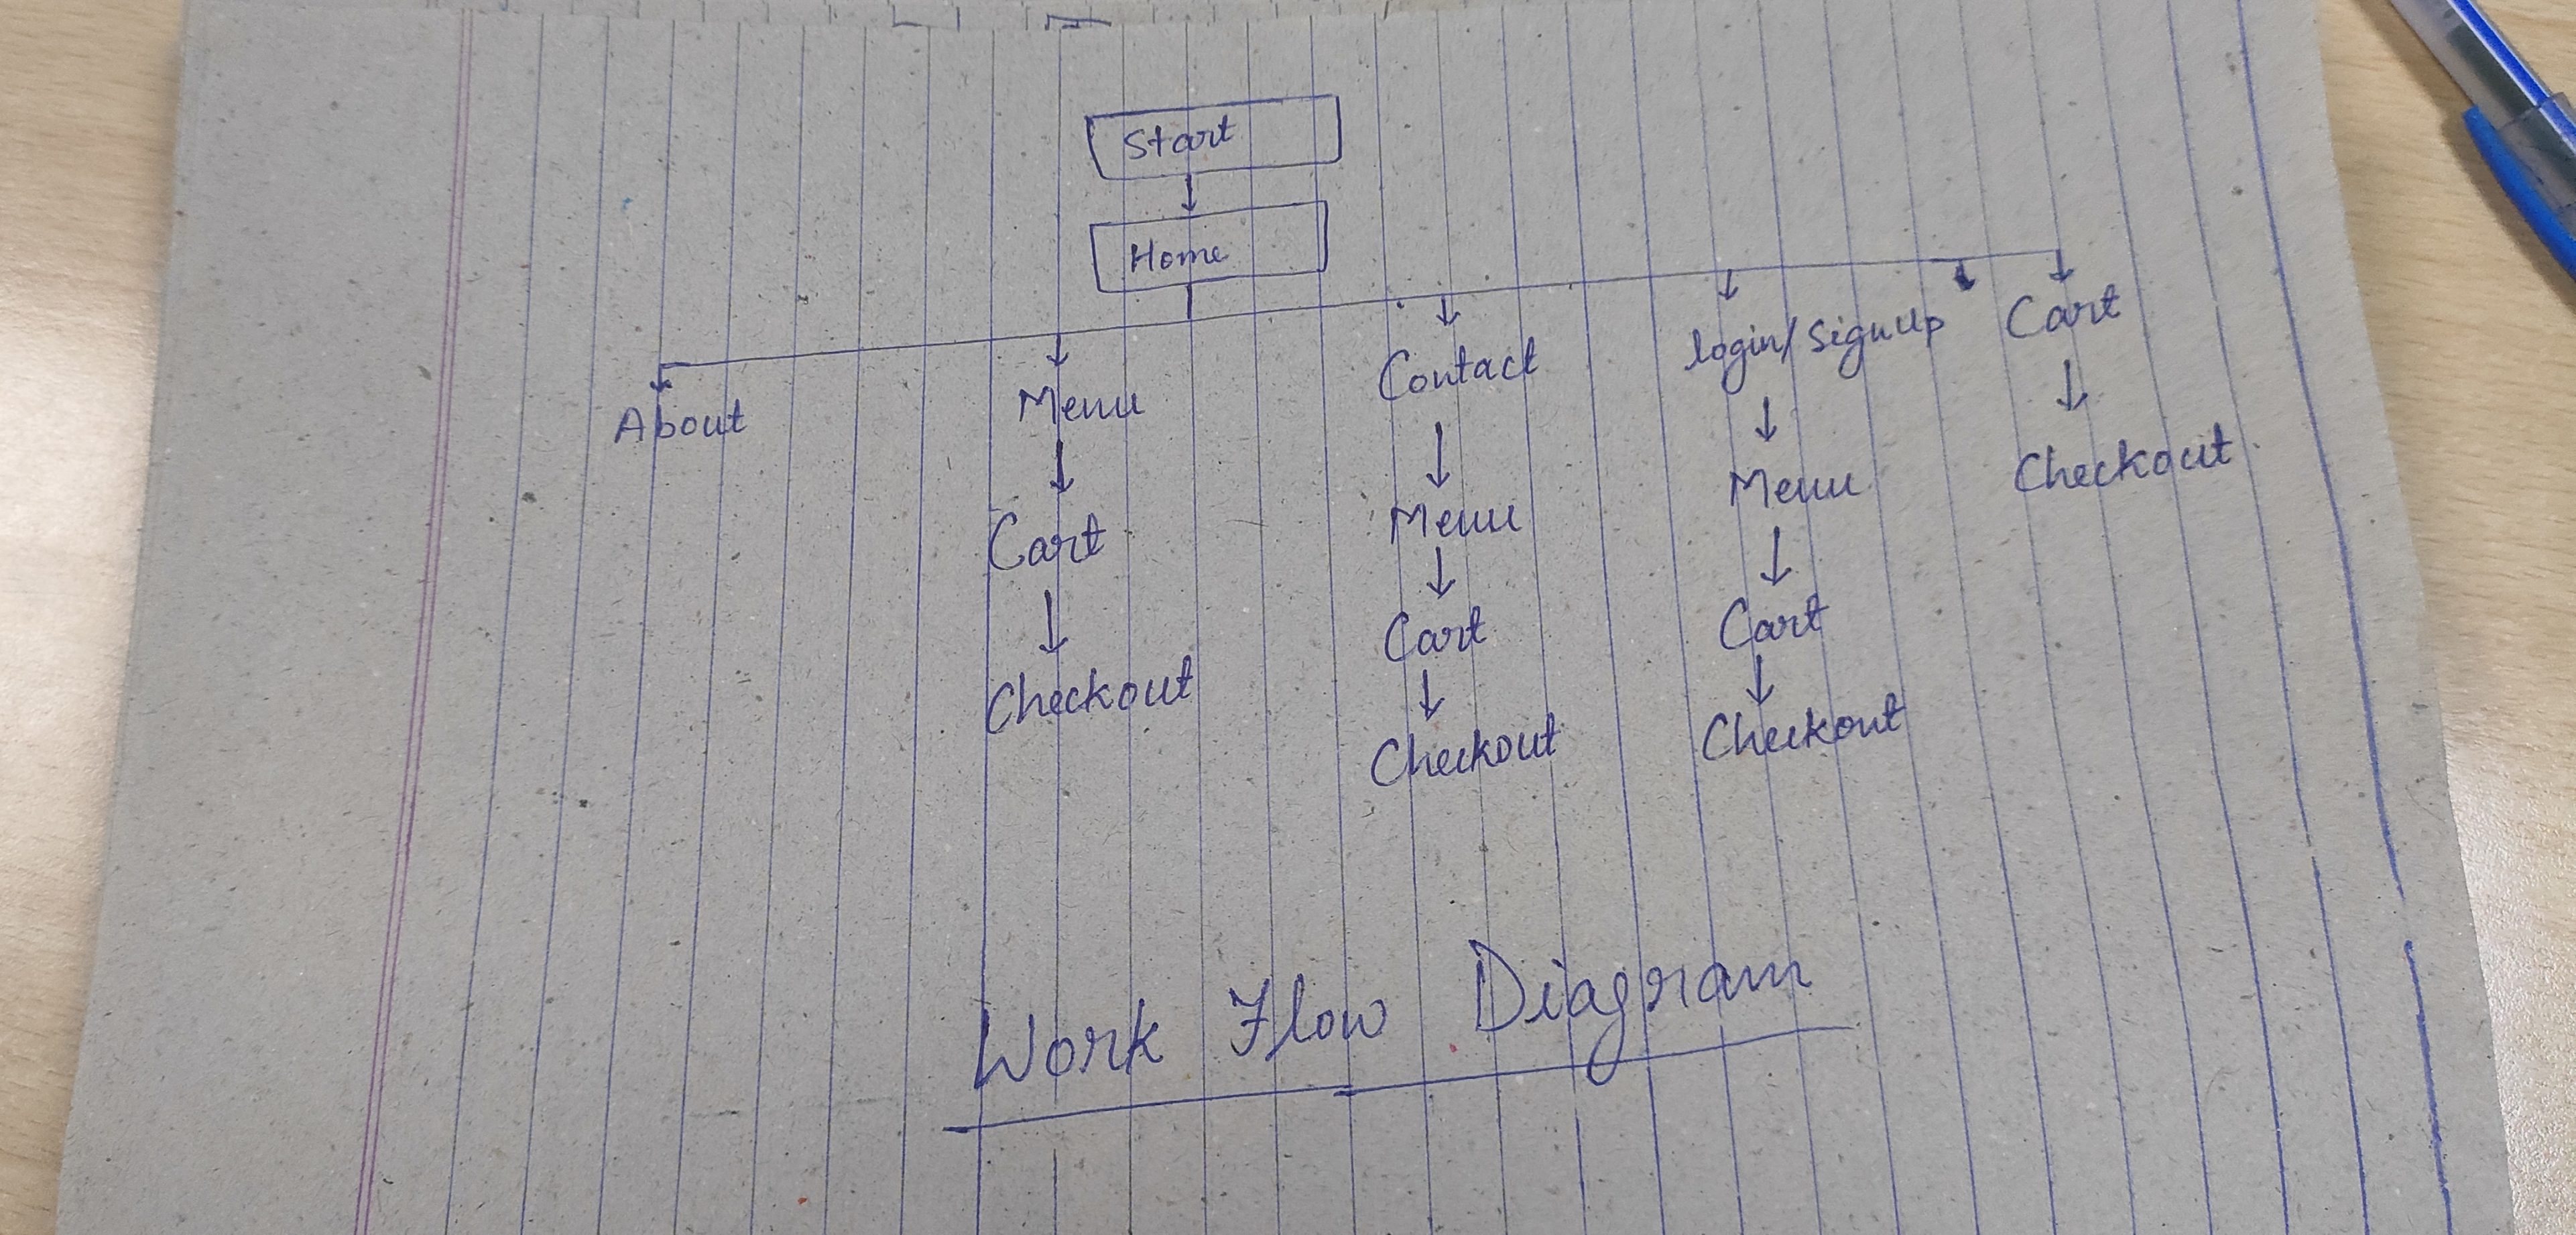 Start
Home
About
Menu
Cart
Checkout
Contact
Menu
Cart
Checkout
login/Signup
Menu
Cart
Checkout
Cart
Checkout
Work Flow Diagram